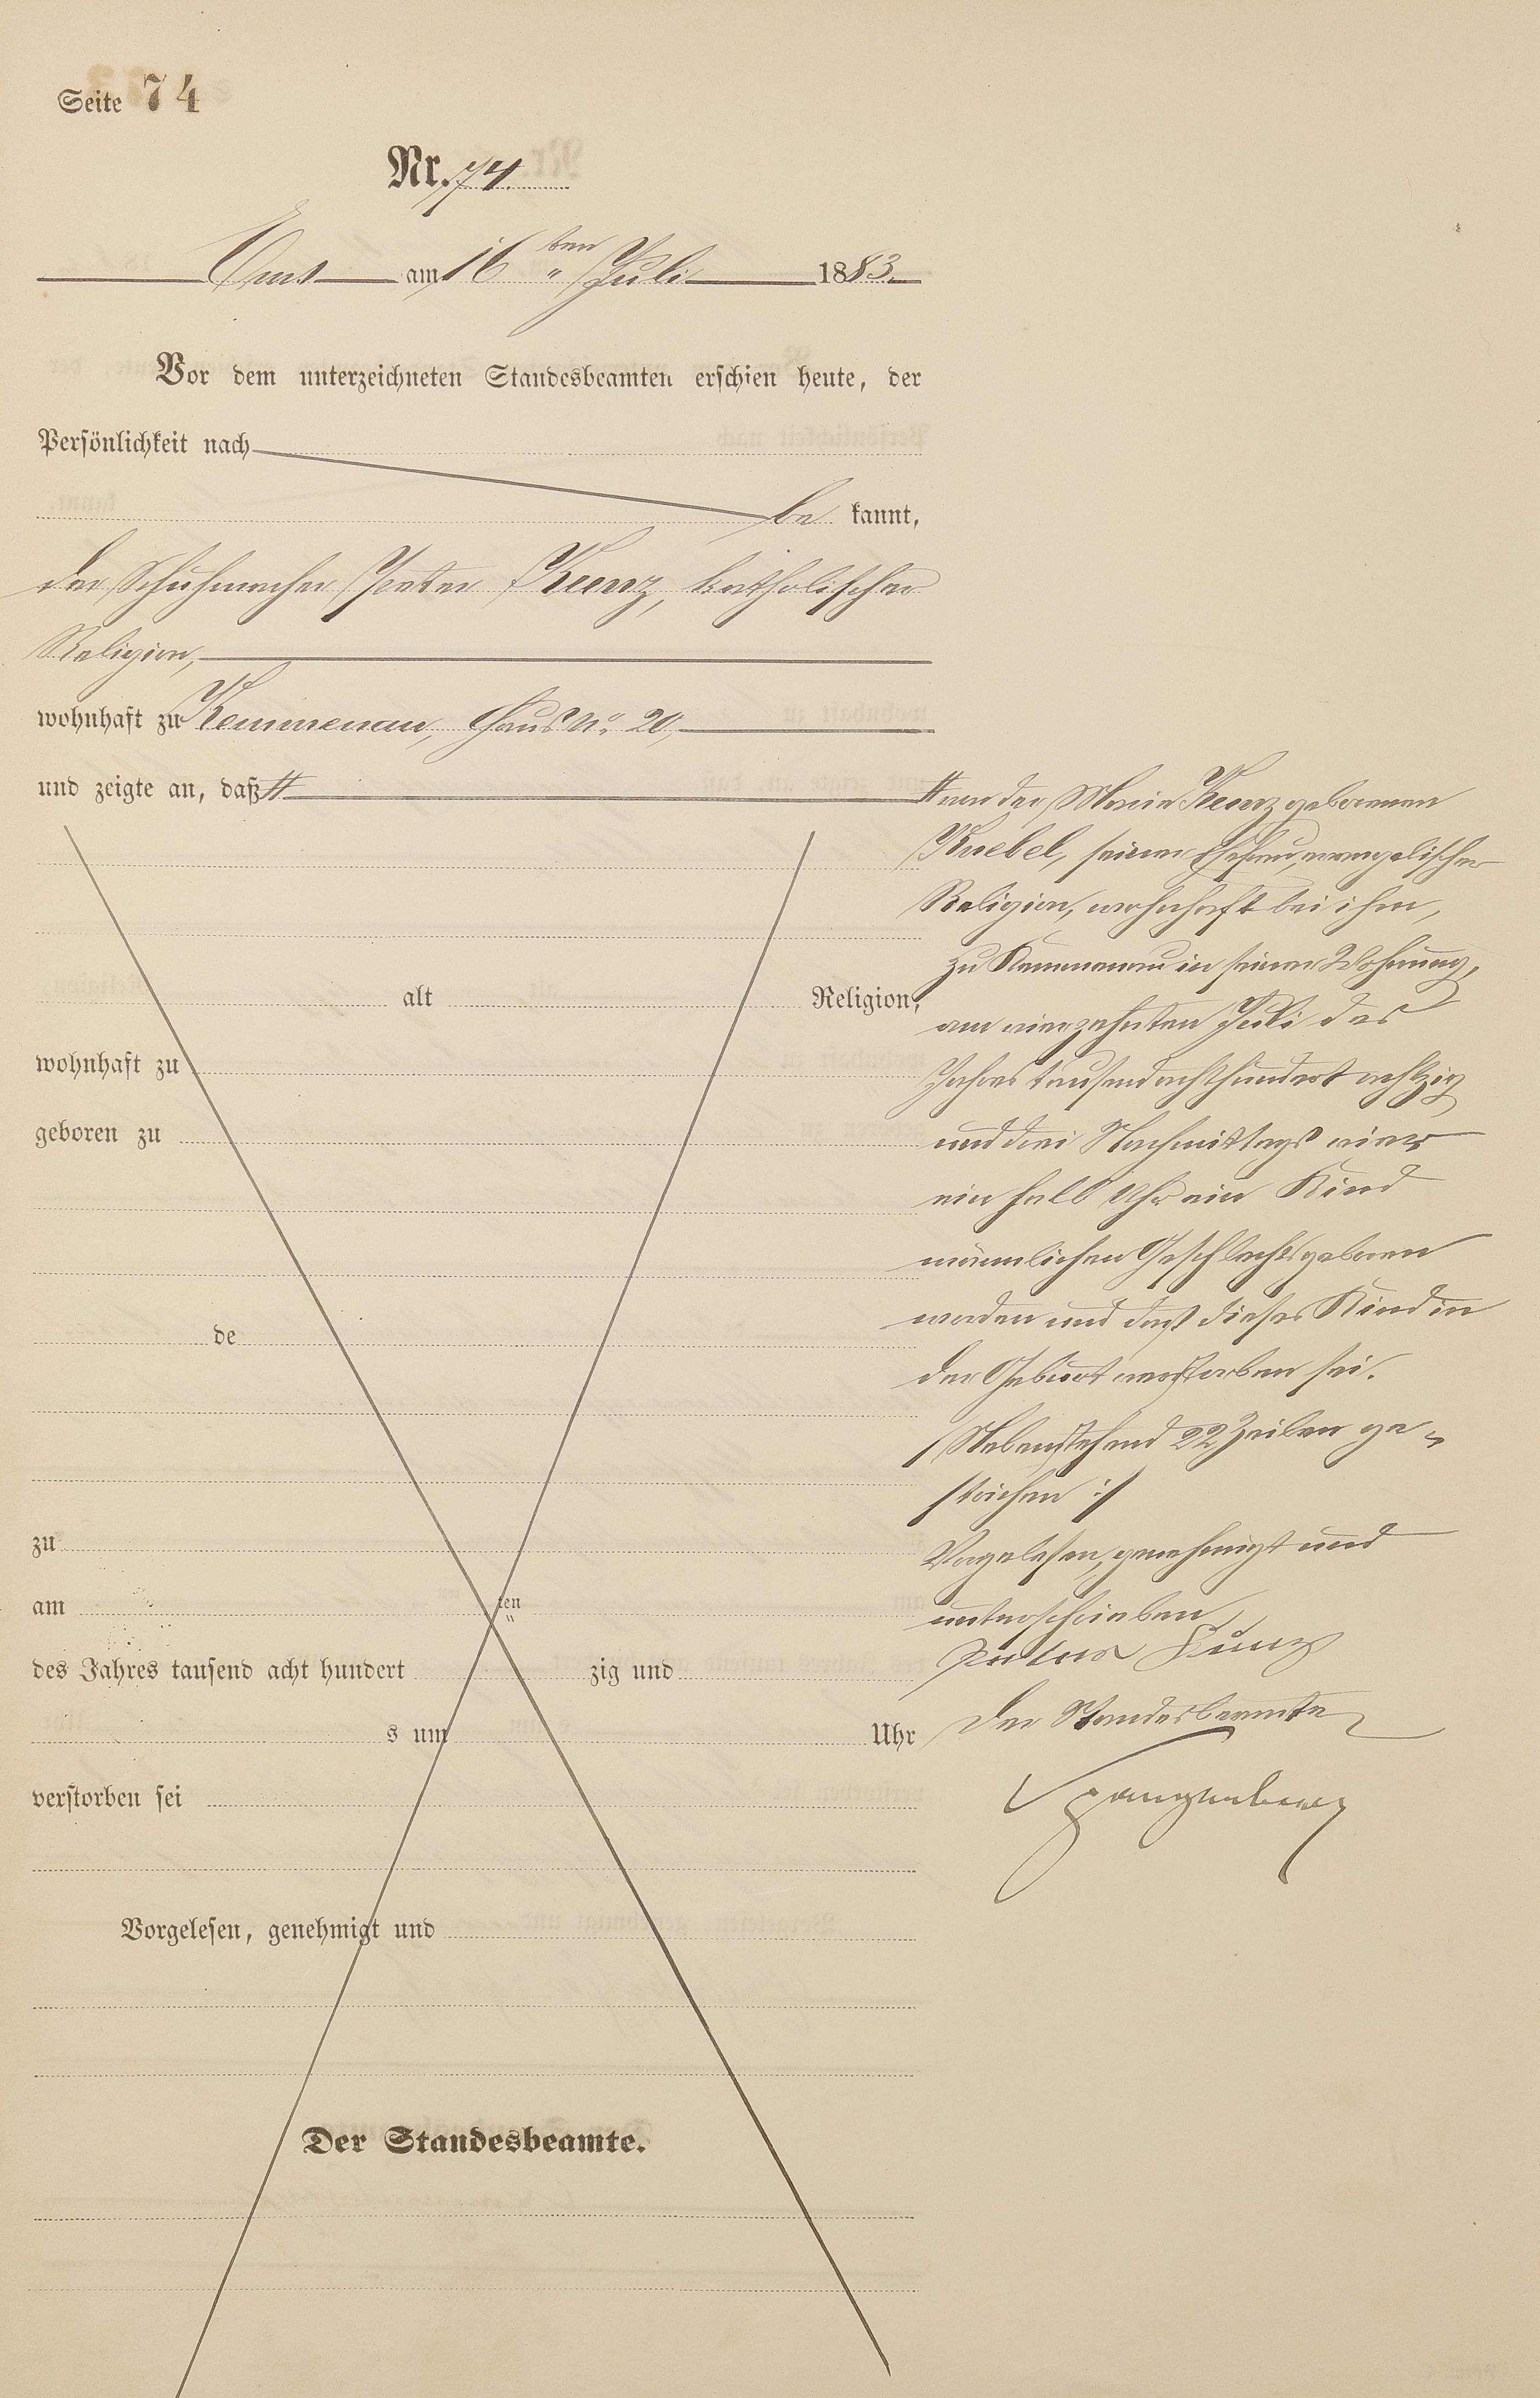 Seite 74
Nr. 74.
Ems am 16ten Juli 1883.
Vor dem unterzeichneten Standesbeamten erschien heute, der
Persönlichkeit nach
be kannt,
der Schuhmacher Peter Kunz, katholischer
Religion,
wohnhaft zu Kemmenau, Haus No. 20,
und zeigte an, daß #
alt Religion,
wohnhaft zu
geboren zu
de
zu
am ten
des Jahres tausend acht hundert zig und
s um Uhr
verstorben sei
Vorgelesen, genehmigt und
Der Standesbeamte.
# von der Maria Kunz geborenen
Knebel, seiner Ehefrau, evangelischer
Religion, wohnhaft bei ihm,
zu Kemmenau in seiner Wohnung,
am vierzehnten Juli des
Jahres tausend achthundert achtzig
und drei Nachmittags
ein halb Uhr ein Kind
männlichen Geschlechts geboren
worden und daß dieses Kind in
der Geburt verstorben sei.
Nebenstehend 22 Zeilen ge-
strichen :/
Vorgelesen, genehmigt und
unterschrieben
Peter Kunz
Der Standesbeamte
Spangenberg